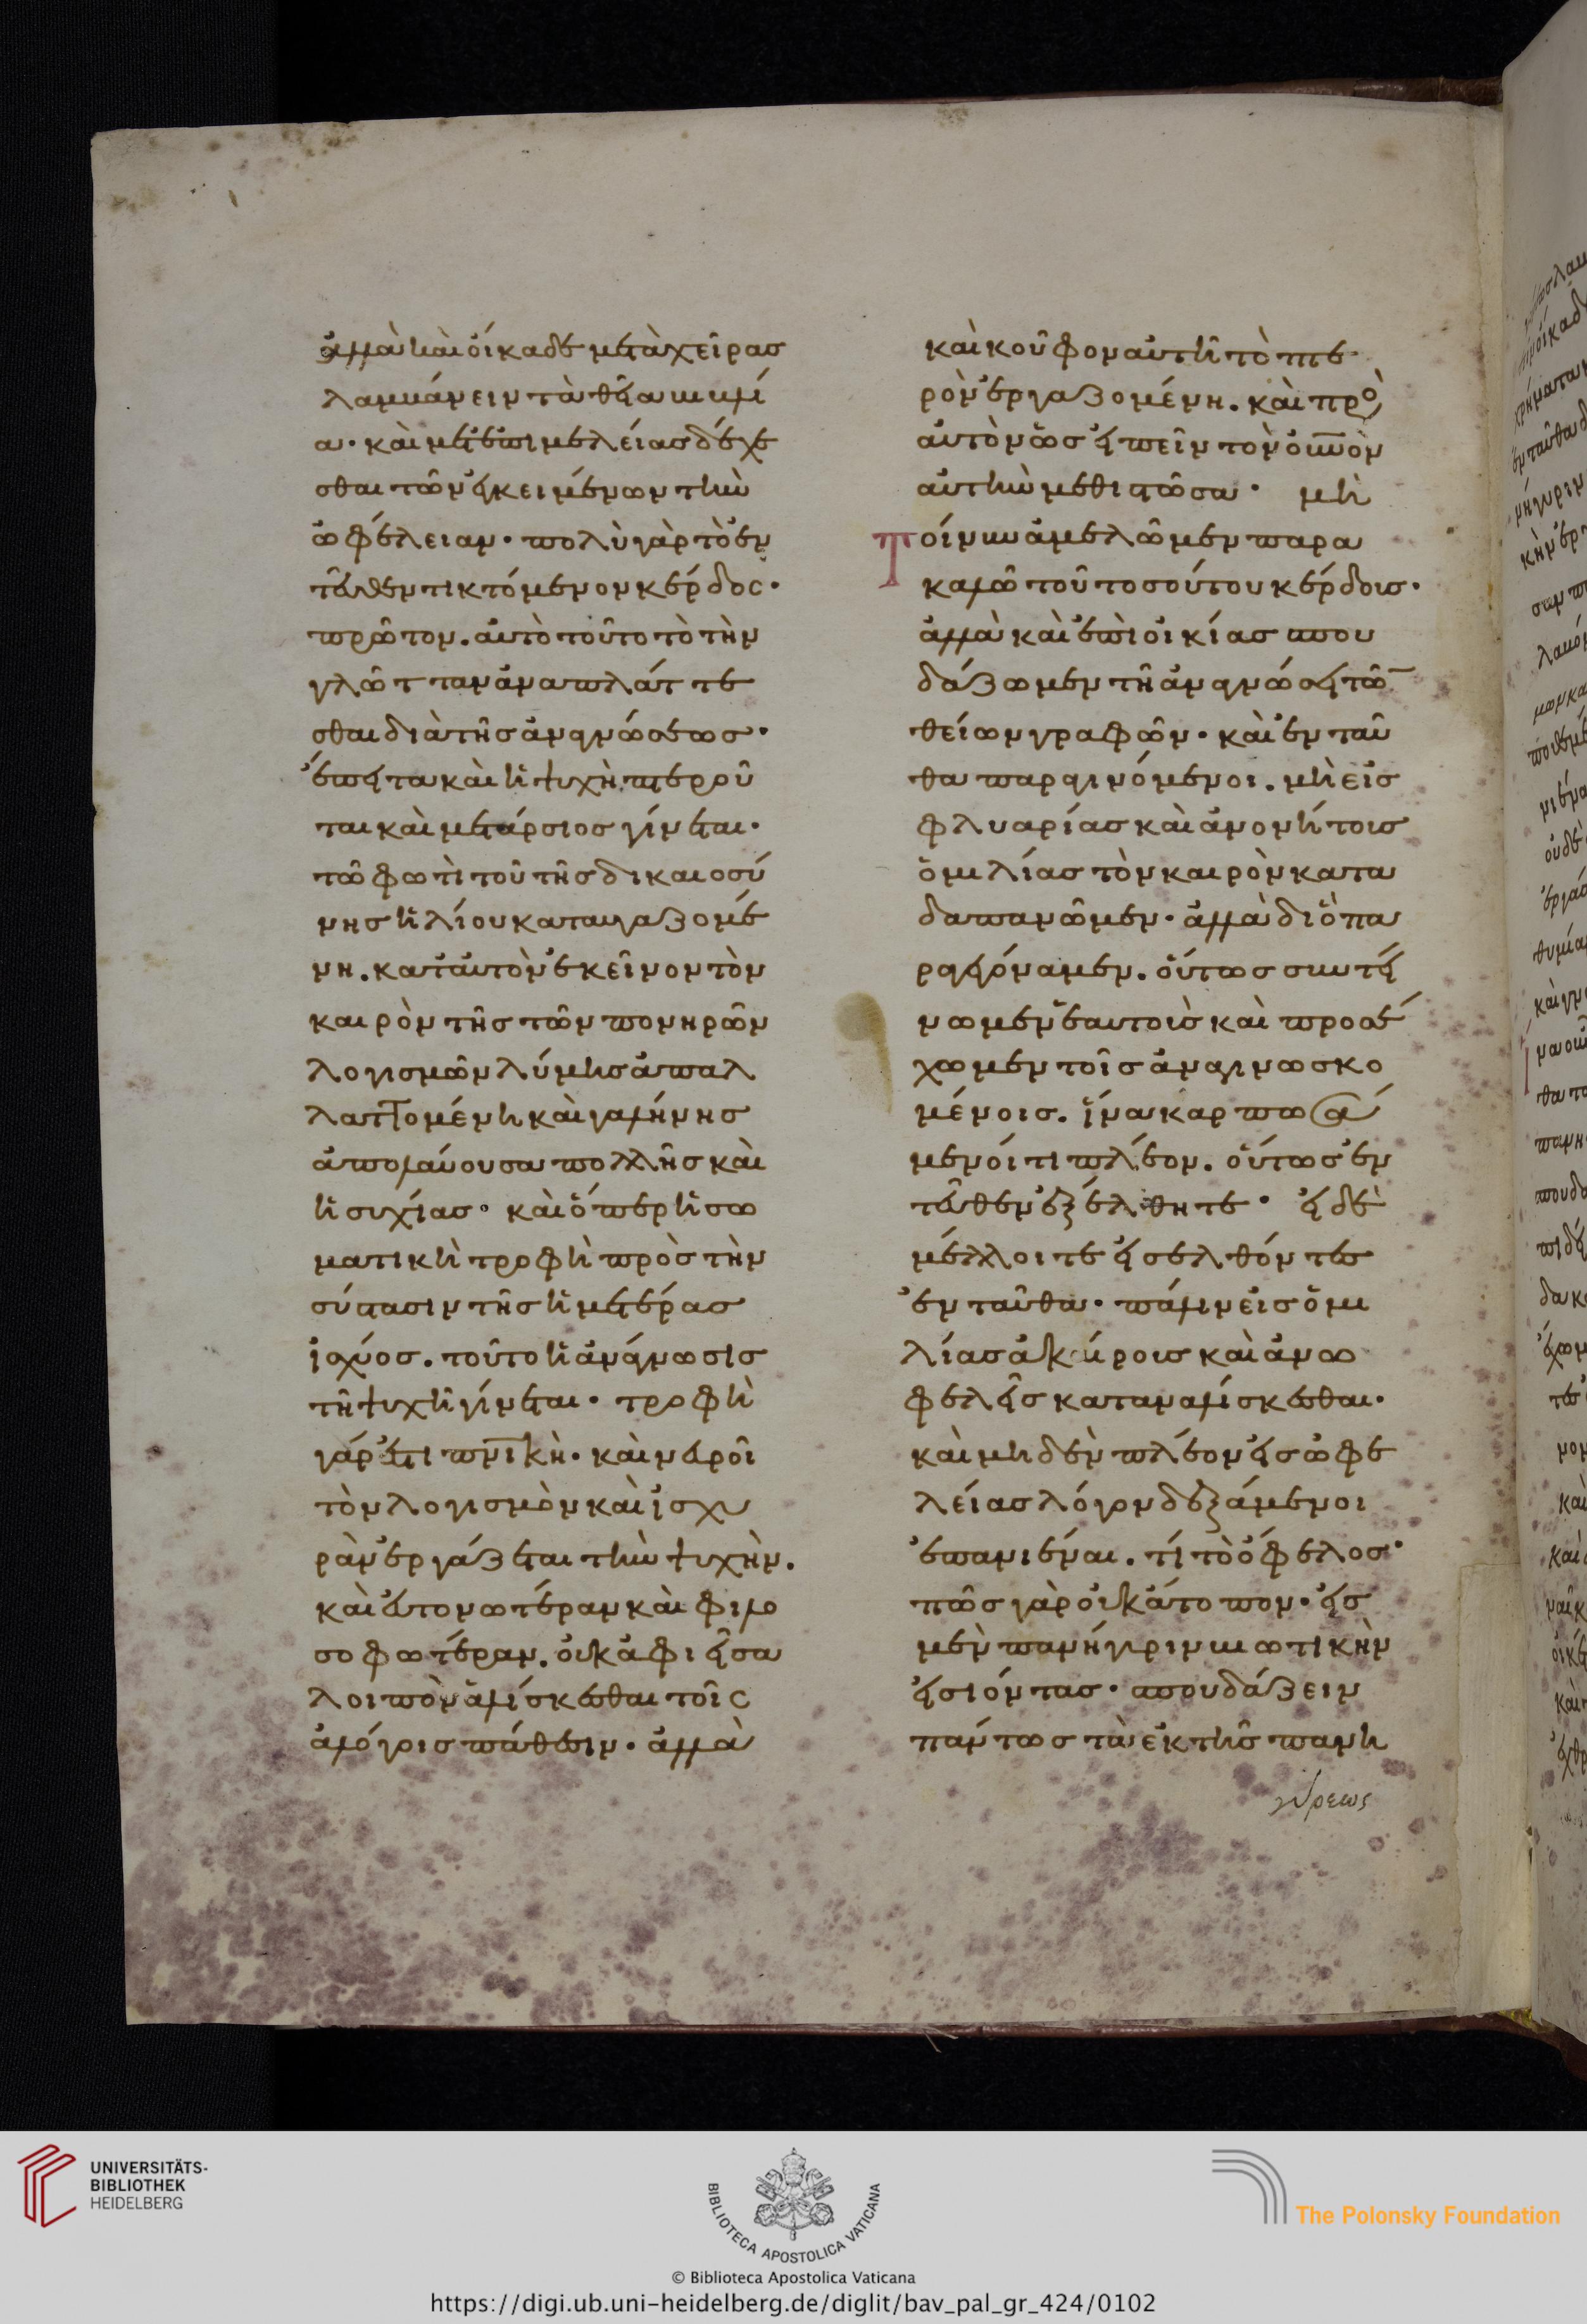 ἀλλὰ καὶ οἴκαδε μετὰ χεῖρας
λαμβάνειν τὰ θεῖα βιβλί
α· καὶ μετ ἐπιμελείας δέχε
σθαι τῶν ἐγκειμένων τὴν
ὠφέλειαν· πολὺ γὰρ τὸ ἐν
τεῦθεν τικτόμενον κέρδος·
πρῶτον. αὐτὸ τοῦτο τὸ τὴν
γλῶτταν ἀναπλάττε
σθαι διὰ τῆς ἀναγνώσεως·
ἔπειτα καὶ ἡ ψυχὴ πτεροῦ
ται καὶ μετάρσιος γίνεται·
τῶ φωτὶ τοῦ τῆς δικαιοσύ
νης ἡλίου καταυγαζομέ
νη. κατ αὐτὸν ἐκεῖνον τὸν
καιρὸν τῆς τῶν πονηρῶν
λογισμῶν λύμης ἀπαλ
λαττομένη καὶ γαλήνης
ἀπολαύουσα πολλῆς καὶ
ἡσυχίας· καὶ ὅπερ ἡ σω
ματικὴ τροφὴ πρὸς τὴν
σύστασιν τῆς ἡμετέρας
ἰσχύος. τοῦτο ἡ ἀνάγνωσις
τῆ ψυχῆ γίνεται· τροφὴ
γάρ ἐστι πνικὴ· καὶ νευροῖ
τὸν λογισμὸν καὶ ἰσχυ
ρὰν ἐργάζεται τὴν ψυχὴν.
καὶ εὐτονωτέραν καὶ φιλο
σοφωτέραν. οὐκ ἀφιεῖσα
λοιπὸν ἁλίσκεσθαι τοῖς
ἀλόγοις πάθεσιν· ἀλλὰ
καὶ κοῦφον αὐτῆ τὸ πτε
ρὸν ἐργαζομένη. καὶ πρὸ
αὐτὸν ὡς εἰπεῖν τὸν οὐνὸν
αὐτὴν μεθιστῶσα· μὴ
τοίνυν ἀμελῶμεν παρα
καλῶ τοῦ τοσούτου κέρδους·
ἀλλὰ καὶ ἐπὶ οἰκίας σπου
δάζωμεν τῆ ἀναγνώσει τῶ
θείων γραφῶν· καὶ ἐνταῦ
θα παραγινόμενοι. μὴ εἰς
φλυαρίας καὶ ἀνονήτους
ὁμιλίας τὸν καιρὸν κατα
δαπανῶμεν· ἀλλὰ διὸ πα
ραγεγόναμεν. οὕτως συντεί
νωμεν ἑαυτοὺς καὶ προσέ
χωμεν τοῖς ἀναγινωσκο
μένοις. ἵνα καρπωσά
μενοί τι πλέον. οὕτως ἐν
τεῦθεν ἐξέλθητε· εἰ δὲ
μέλλοιτε εἰσελθόντες
ἐνταῦθα· πάλιν εἰς ὁμι
λίας ἀκαίρους καὶ ἀνω
φελεῖς καταναλίσκεσθαι·
καὶ μηδὲν πλέον εἰς ὠφε
λείας λόγον δεξάμενοι
ἐπανιέναι. τί τὸ ὄφελος·
πῶς γὰρ οὐκ ἄτοπον· εἰς
μὲν πανήγυριν βιωτικὴν
εἰσιόντας· σπουδάζειν
πάντως τὰ ἐκ τῆς πανη
γύρεως
UNIVERSITÄTS-
BIBLIOTHEK
HEIDELBERG
BIBLIOTECA APOSTOLICA VATICANA
The Polonsky Foundation
© Biblioteca Apostolica Vaticana
https://digi.ub.uni-heidelberg.de/diglit/bav_pal_gr_424/0102